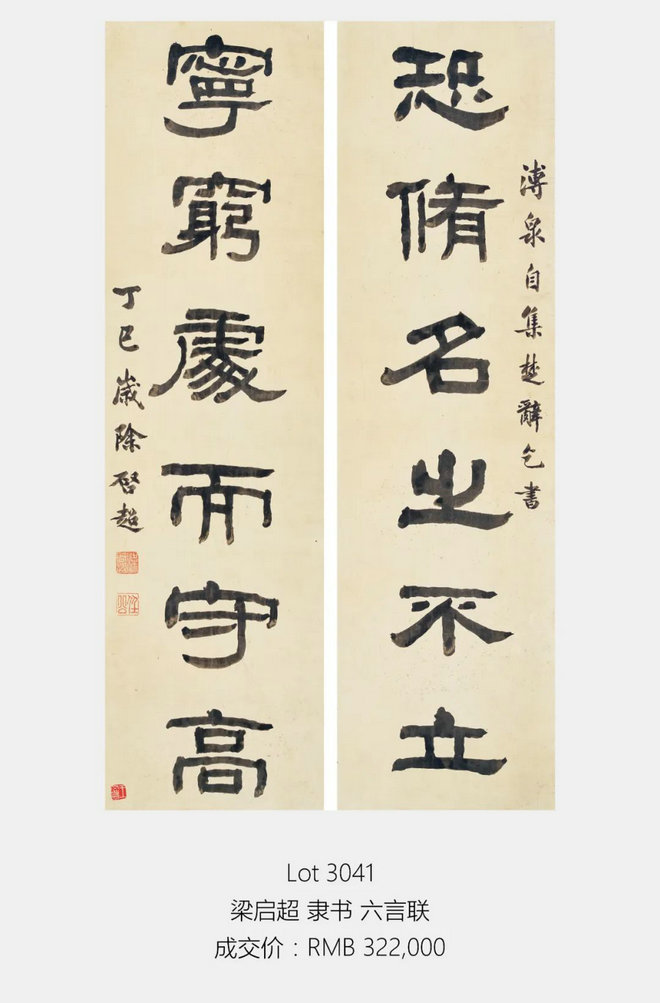 溥泉自集楚辭乞書
恐脩名之不立
寧窮處而守高
丁巳歲除啓超
Lot 3041
梁启超 隶书 六言联
成交价：RMB 322,000